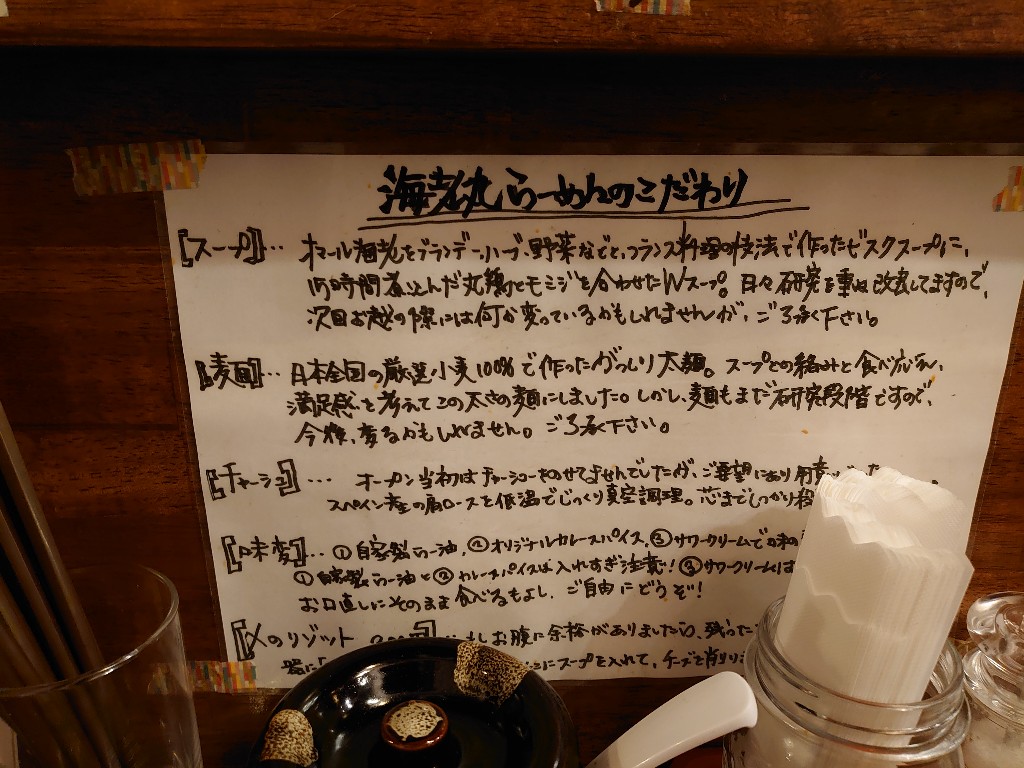 海老丸らーめんのこだわり
[スープ]… オマール海老をブランデー、ハーブ、野菜などと、フランス料理の技法で作ったビスクスープに、
15時間煮込んだ丸鶏とモミジを合わせたWスープ。日々研究を重ね改良してますので、
次回お越の際には何か変っているかもしれませんが、ご了承下さい。
[麺]… 日本全国の厳選小麦100%で作ったがっしり太麺。スープとの絡みと食べ応え、
満足感を考えてこの太さの麺にしました。しかし、麺もまだ研究段階ですので、
今後、変るかもしれません。ご了承下さい。
[チャーシュー]… オープン当初はチャーシューをのせてませんでしたが、ご要望により用意
スペイン産の肩ロースを低温でじっくり真空調理。芯までしっかり
[味変]… ①自家製ラー油、②オリジナルカレースパイス、③サワークリームで味の
①自家製ラー油と②カレースパイスは入れすぎ注意!③サワークリームは
お口直しにそのまま食べるもよし、ご自由にどうぞ!
[〆のリゾット]…もしお腹に余裕がありましたら、残った
器に スープを入れて、チーズを削り